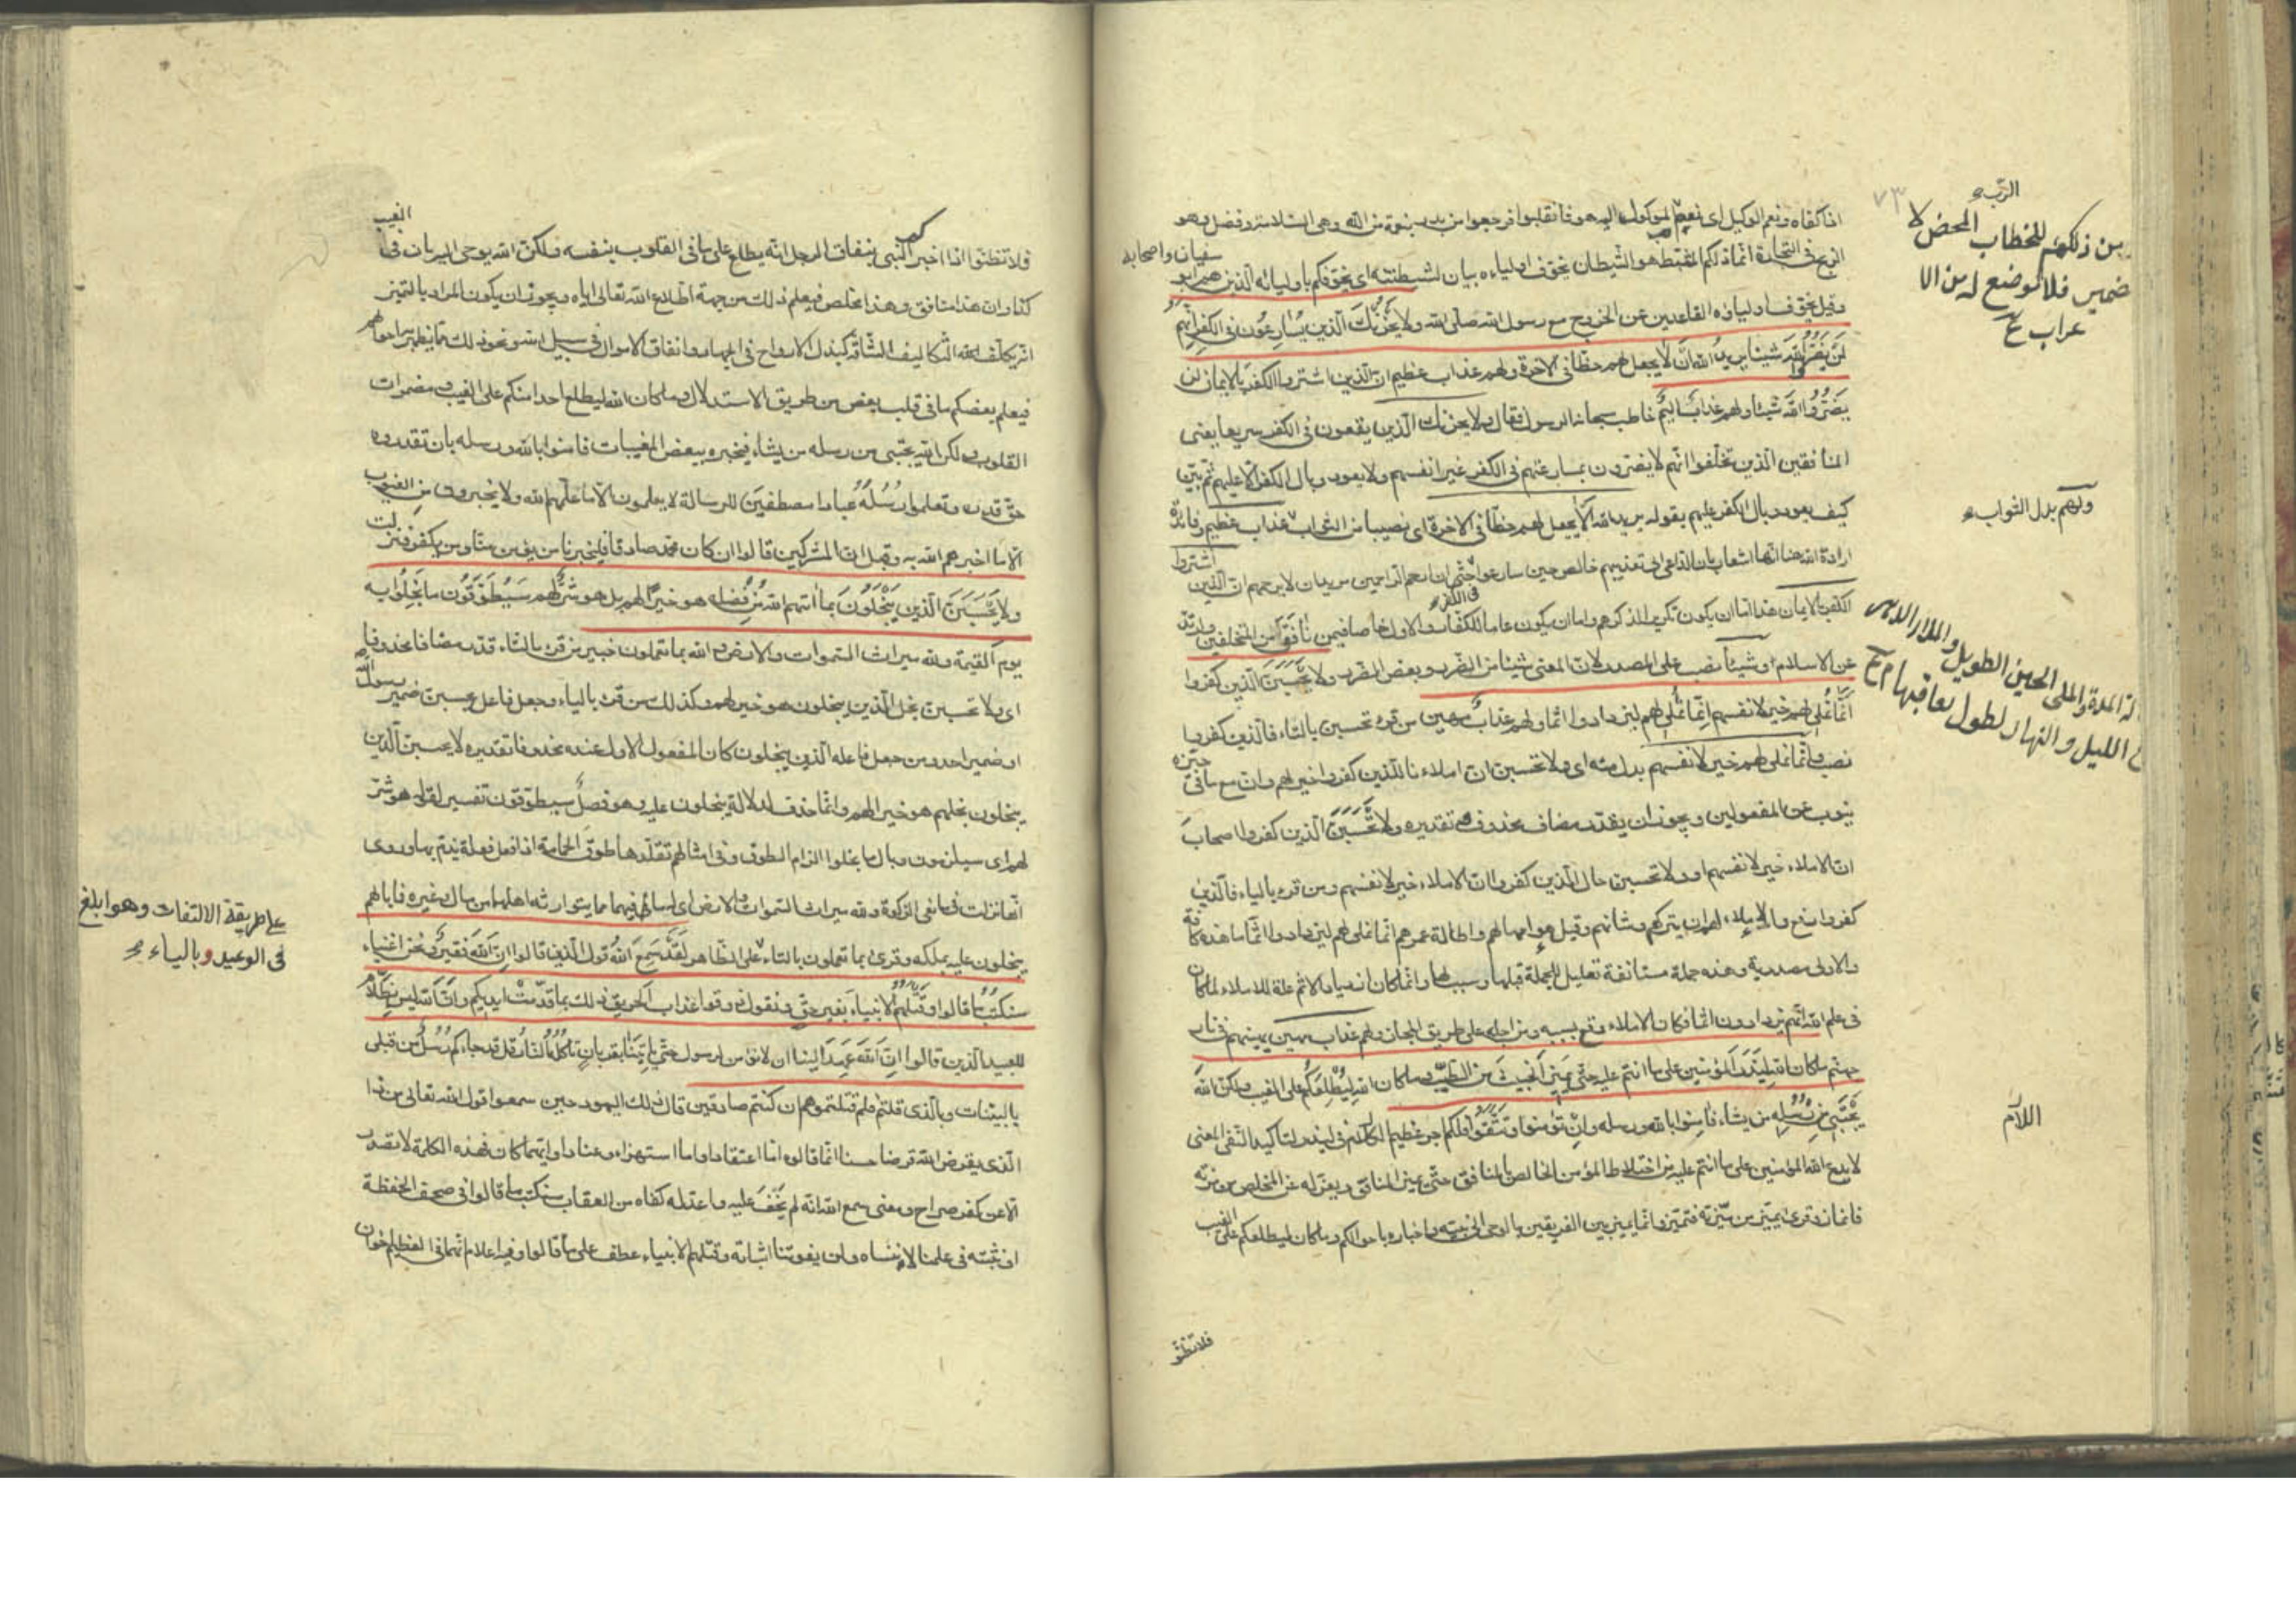 اذا كفاه ونعم الوكيل اى نعم الموكول اليه هو فانقلبوا فرجعوا من بدر بنعمة من الله وهى السلامة وفضل وهو
الربح فى التجارة انما ذلكم المثبط هو الشيطان يخوف اولياءه بيان لشيطنته اى يخوفكم باوليائه الذين هم ابو
سفيان واصحابه
وقيل يخوف اولياؤه القاعدين عن الخروج مع رسول الله صلى الله ولا يَحْزُنْكَ الذين يُسَارِعُون فى الكفر انهم
لَنْ يَضُرُّوا اللهَ شيئا يريدُ الله اَنْ لا يجعل لهم حظا فى الآخرة ولهم عذاب عظيم ان الذين اشتروا الكفر بالايمان لن
يَضُرُّوا اللهَ شيئا ولهم عذابٌ اليمٌ خاطب سبحانه الرسول فقال ولا يحزنك الذين يقعون فى الكفر سريعا يعنى
المنافقين الذين تخلفوا انهم لا يضرون بمسارعتهم فى الكفر غير انفسهم ولا يعود وبال الكفر الا عليهم ثم بين
كيف يعود وبال الكفر عليهم بقوله يريد الله الا يجعل لهم حظا فى الاخرة اى نصيبا من الثواب عذاب عظيم وفائدة
ولهم بدل الثواب
ارادة الله هنا انها اشعار بان الداعى الى تعذيبهم خالص حين سارعوا حتى ان ارحم الراحمين مريد ان لا يرحمهم ان الذين اشتروا
فى الكفر
الكفر بالايمان هذا اما ان يكون تكريرا لذكرهم واما ان يكون عاما للكفار والاول خاصا فيمن نافق من المتخلفين وارتد
عن الاسلام وشيئا نصب على المصدر لان المعنى شيئا من الضرر وبعض الضرر ولا يَحْسَبَنَّ الذين كفروا
اَنَّمَا نُمْلِى لهم خير لانفسهم اِنَّمَا نُمْلِى لهم ليزدادوا اثما ولهم عذابٌ مهين من قرء تحسبن بالتاء فالذين كفروا
نصب وانما نملى لهم خير لانفسهم بدل منه اى ولا تحسبن ان املاءنا للذين كفروا خير لهم وان مع ما فى حيزه
ينوب عن المفعولين ويجوز ان يقدر مضاف محذوف تقديره ولا تَحْسَبَنَّ الذين كفروا اصحابَ
ان الاملاء خير لانفسهم او ولا تحسبن حال الذين كفروا ان الاملاء خير لانفسهم ومن قرء بالياء فالذين
كفروا رفع والاملاء لهم ان يتركهم وشانهم وقيل هو امهالهم واطالة عمرهم انما نملى لهم ليزدادوا اثما ما هذه كافة
والاولى مصدرية وهذه جملة مستانفة تعليل للجملة قبلها وانما كان ازدياد الاثم علة للاملاء لما كان
فى علم الله انهم يزدادون اثما فكان الاملاء وقع بسببه ومن اجله على طريق المجاز ولهم عذاب مهين يهينهم فى نار
جهنم ما كان الله ليَذَرَ المؤمنين على ما انتم عليه حتى يَميزَ الخبيثَ من الطيّب وما كان الله لِيُطْلِعَكُم على الغيب ولكن اللهَ
يَجْتَبِى مِنْ رُسُلِهِ من يشاء فآمِنوا بالله ورسله وانْ تؤمنوا وتتَّقُوا فلكم اجر عظيم اللام فى ليذر لتاكيد النفى المعنى
اللام
لا يدع الله المؤمنين على ما انتم عليه من اختلاط المؤمن الخالص بالمنافق حتى يميز المنافق ويعزله عن المخلص من مزته
فانماز وقرئ يميّز من ميّزته فتميّز وانما يميز بين الفريقين بالوحى الى نبيه واخباره باحوالكم وما كان ليطلعكم على الغيب
الرب
للخطاب المحض لا
ضمير فلا موضع له من الا
عراب
المدة والملى الحين الطويل
الليل والنهار لطول تعاقبهما
فلا تظنو
فلا تظنوا اذا اخبر كم النبى بنفاق الرجل انه يطلع على ما فى القلوب بنفسه ولكن الله يوحى اليه بان فى الغيب
كذا وان هذا منافق وهذا مخلص فيعلم ذلك من جهة اطلاع الله تعالى اياه ويجوز ان يكون المراد بالتميز
التكاليف الشاقة كبذل الارواح فى الجهاد وانفاق الاموال فى سبيل الله ونحو ذلك مما يظهر به احوالهم
فيعلم بعضكم ما فى قلب بعض من طريق الاستدلال وما كان الله ليطلع احدا منكم على الغيب ومضمرات
القلوب ولكن الله يجتبى من رسله من يشاء فيخبره ببعض المغيبات فامنوا بالله ورسله بان تقدروه
حق قدره وتعلموا رُسُلَهُ عبادا مصطفين للرسالة لا يعلمون الا ما علمهم الله ولا يخبرون من الغيوب
الا ما اخبرهم الله به وقيل ان المشركين قالوا ان كان محمد صادقا فليخبرنا من يؤمن منا ومن يكفر فنزلت
ولا يَحْسَبَنَّ الذين يَبْخَلُونَ بما اتٰهم الله مِنْ فضله هو خيرًا لهم بل هو شرٌّ لهم سَيُطَوَّقُونَ ما بَخِلُوا به
يوم القيمة ولله ميراث السموات والارض والله بما تعملون خبير من قرء بالتاء قدر مضافا محذوفا
اى ولا تحسبن بخل الذين يبخلون هو خير لهم وكذلك من قرء بالياء وجعل فاعل يحسبن ضمير رسول الله
او ضمير احد ومن جعل فاعله الذين يبخلون كان المفعول الاول عنده محذوفا تقديره لا يحسبن الذين
يبخلون بخلهم هو خير الهم وانما حذف لدلالة يبخلون عليه وهو فصلٌ سيطوقون تفسير لقوله هو شر
لهم اى سيلزمون وبال ما بخلوا الزام الطوق وفى امثالهم تقلدها طوق الحمامة اذا فعل فعلة يذم بها وروى
انها نزلت فى مانعى الزكوة ولله ميراث السموات والارض اى له ما فيهما مما يتوارثه اهلهما من مال وغيره فما بالهم
يبخلون عليه بملكه وقرئ بما تعملون بالتاء على الظاهر لَقَدْ سَمِعَ اللهُ قول الذين قالوا ان اللهَ فقيرٌ ونحن اغنياء
على طريقة الالتفات وهو ابلغ
فى الوعيد وبالياء
سنكتُبُ ما قالوا وقَتْلَهُمُ الانبياءَ بغير حقٍ ونقول ذوقوا عذاب الحريق ذلك بما قدّمتْ ايديكم وانَّ الله ليس بظلّام
للعبيد الذين قالوا انّ الله عَهِدَ الينا ان لا نؤمن لرسول حتى يأتِيَنا بقربانٍ تأكُلُهُ النّارُ قل قد جاءكم رُسُلٌ من قبلى
بالبينات وبالذى قلتم فلم قتلتموهم ان كنتم صادقين قال ذلك اليهود حين سمعوا قول الله تعالى من ذا
الذى يقرض الله قرضا حسنا انما قالوه اما اعتقادا واما استهزاء وعنادا وايهما كان فهذه الكلمة لا تصدر
الا عن كفر صراح ومعنى سمع الله انه لم يَخْفَ عليه واعد له كفاه من العقاب سنكتب ما قالوا فى صحف الحفظة
او نثبته فى علمنا لا ننساه ولن يفوتنا اثباته وقتلهم الانبياء عطف على ما قالوا وفيه اعلام انهما فى العظيم اخوان